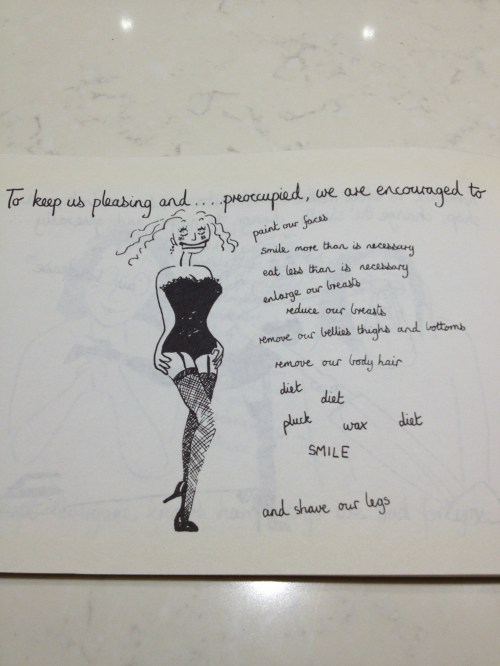 To keep us pleasing and....preoccupied, we are encouraged to
paint our faces
smile more than is necessary
eat less than is necessary
enlarge our breasts
reduce our breasts
remove our bellies thighs and bottoms
remove our body hair
diet
diet
pluck wax diet
SMILE
and shave our legs